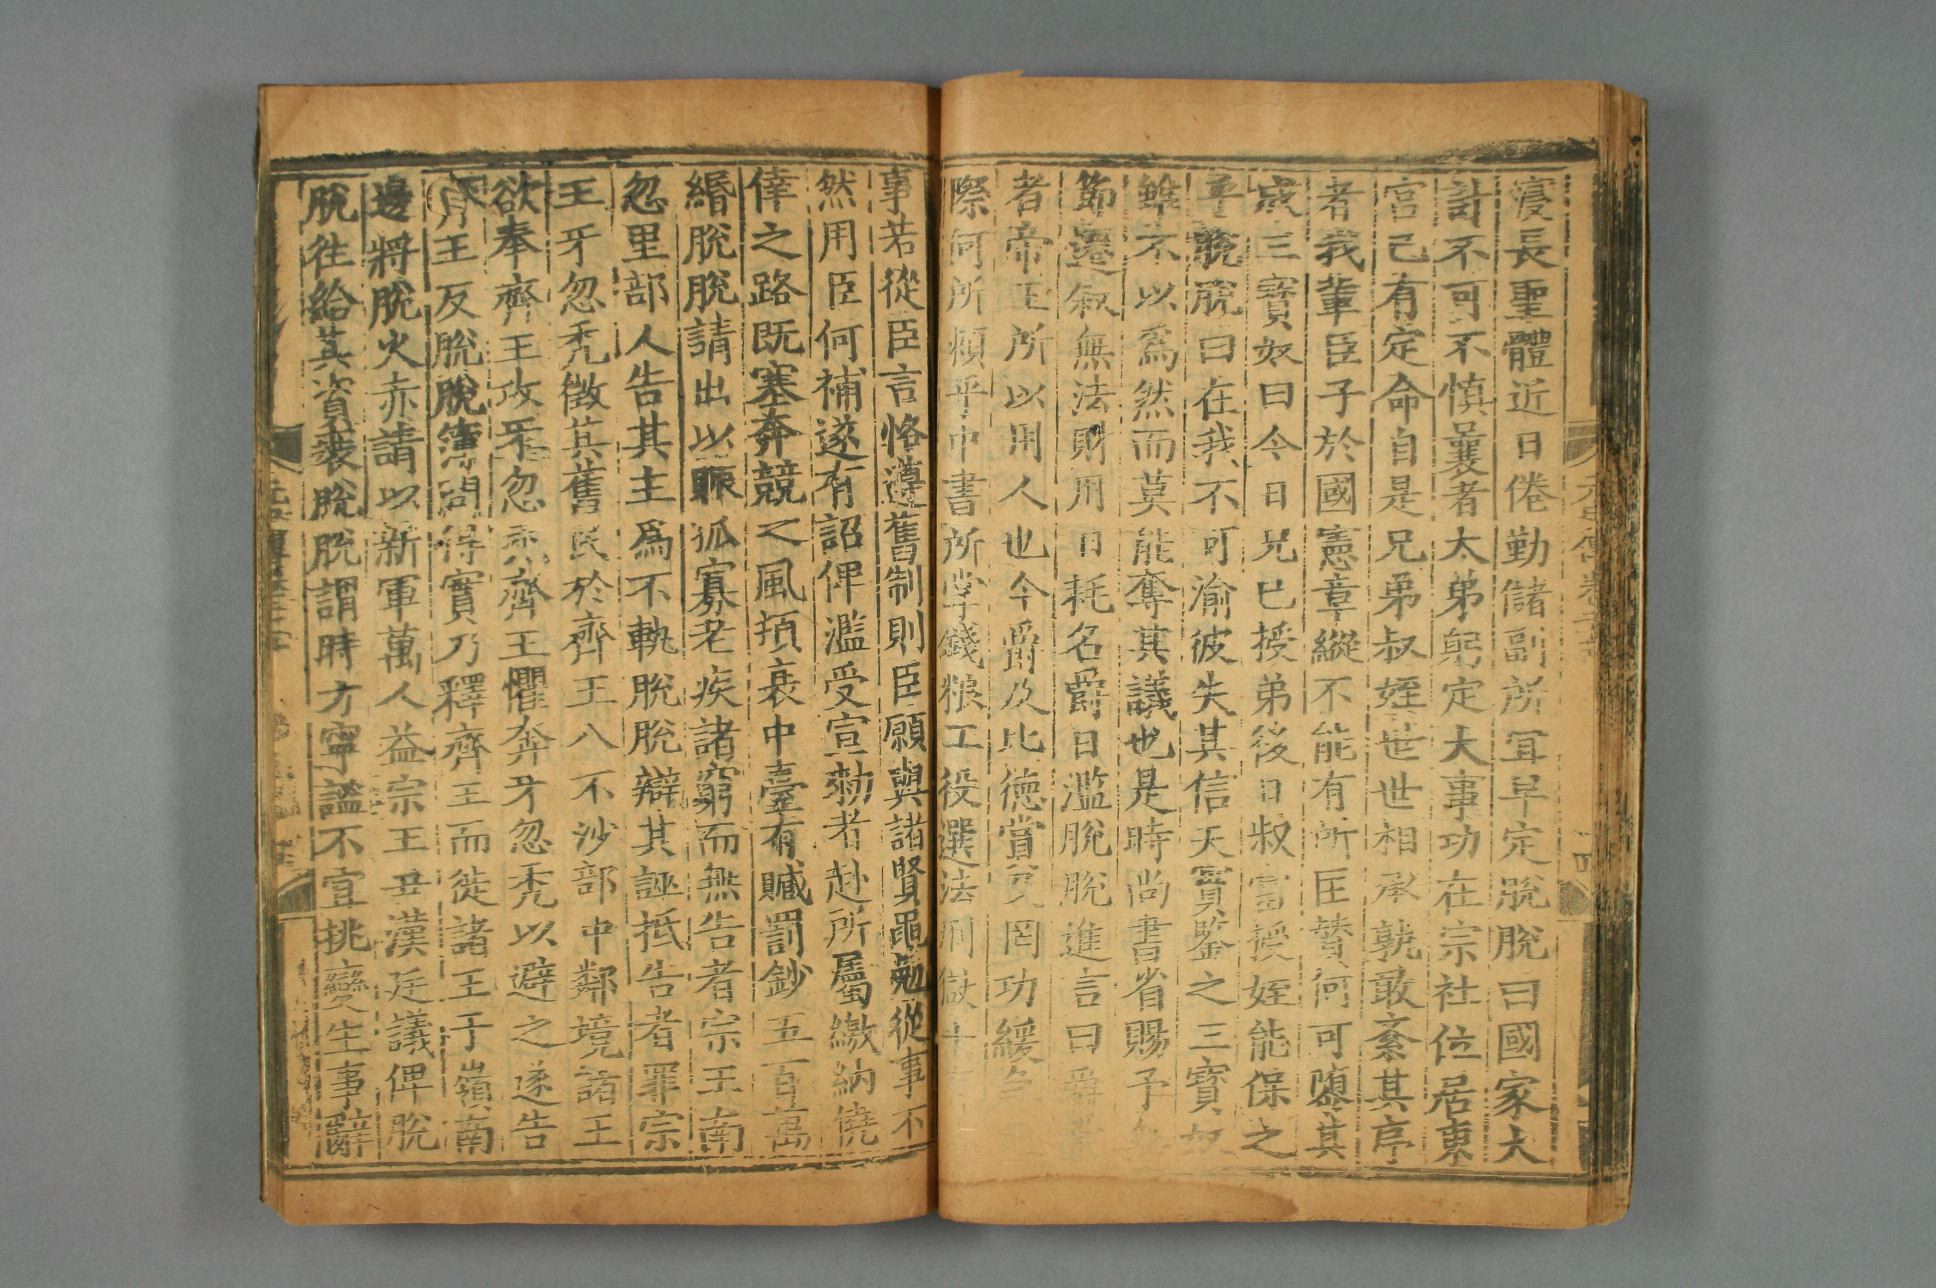 寖長聖體近日倦勤儲副所宜早定脫脫曰國家大
計不可不慎曩者太弟躬定大事功在宗社位居東
宮已有定命自是兄弟叔姪世世相承孰敢紊其序
者我輩臣子於國憲章縱不能有所匡贊何可隳其
成三寶奴曰今日兄已授弟後日叔當授姪能保之
乎脫脫曰在我不可渝彼失其信天實鑒之三寶奴
雖不以爲然而莫能奪其議也是時尚書省賜予無
節遷叙無法財用日耗名爵日濫脫脫進言曰爵賞
者帝王所以用人也今爵及比德賞及罔功緩急
際何所頼乎中書所掌錢粮工役選法刑獄十
事若從臣言恪遵舊制則臣願與諸賢黽勉從事不
然用臣何補遂有詔俾濫受宣勑者赴所屬繳納僥
倖之路既塞奔競之風頓衰中臺有贓罰鈔五百萬
緡脫脫請出以賑孤寡老疾諸窮而無告者宗王南
忽里部人告其主爲不軌脫脫辯其誣抵告者罪宗
王牙忽禿徵其舊民於齊王八不沙部中鄰境諸王
欲奉齊王攻牙忽禿齊王懼奔牙忽禿以避之遂告
齊王反脫脫簿問得實乃釋齊王而徙諸王于嶺南
邊將脫火赤請以新軍萬人益宗王丑漢廷議俾脫
脫往給其資裝脫脫謂時方寧謐不宜挑變生事辭